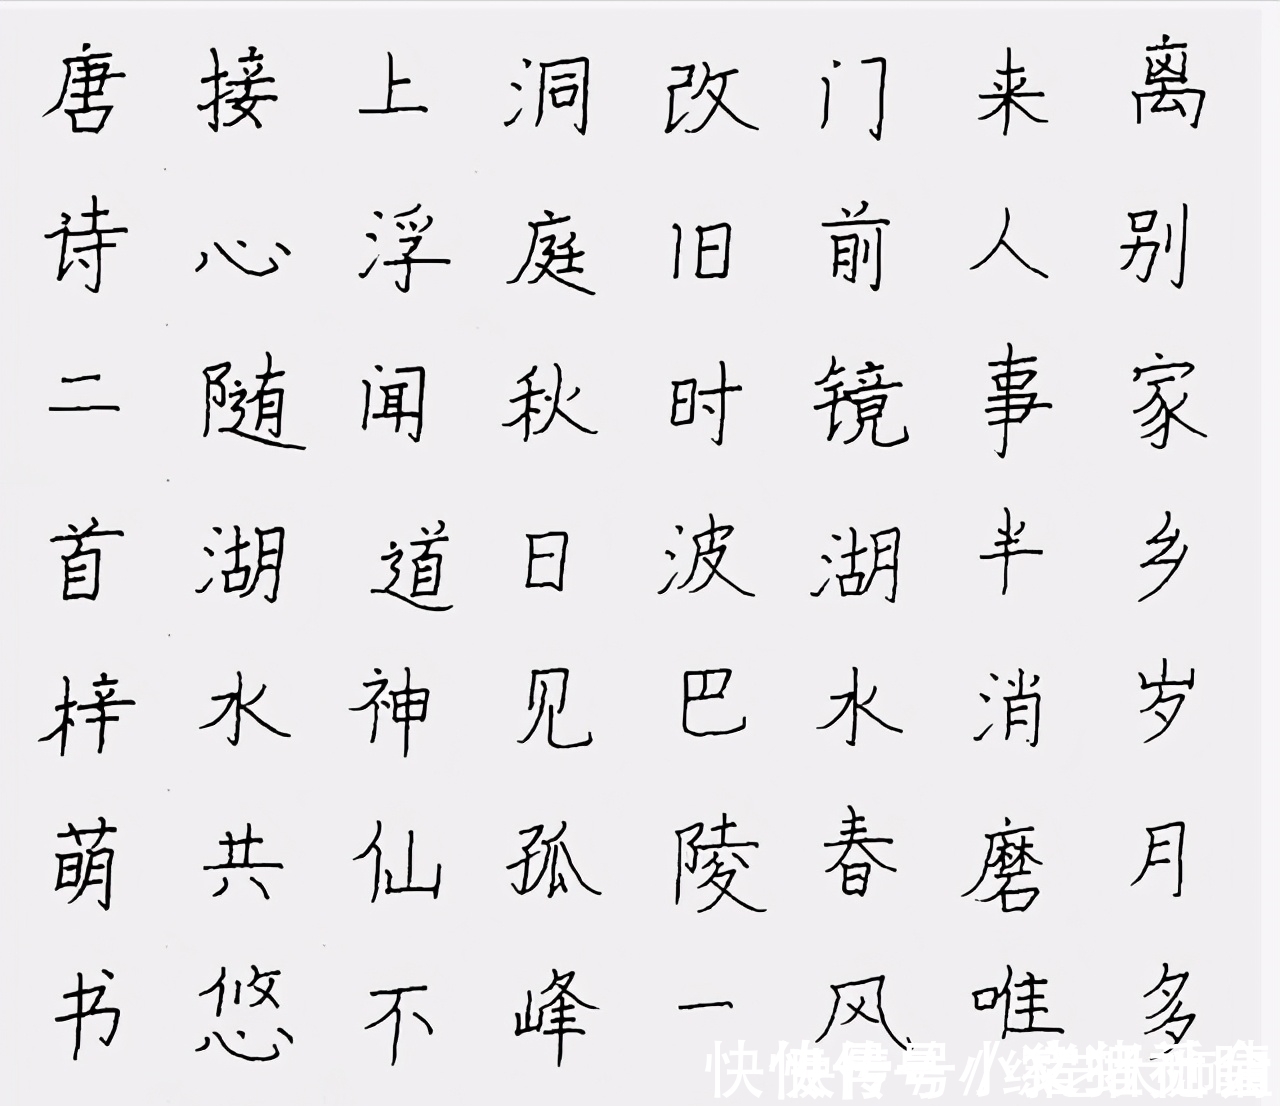 离别家乡岁月多
来人事半消磨唯
门前镜湖水春风
改旧时波巴陵一
洞庭秋日见孤峰
上浮闻道神仙不
接心随湖水共悠
唐诗二首梓萌书